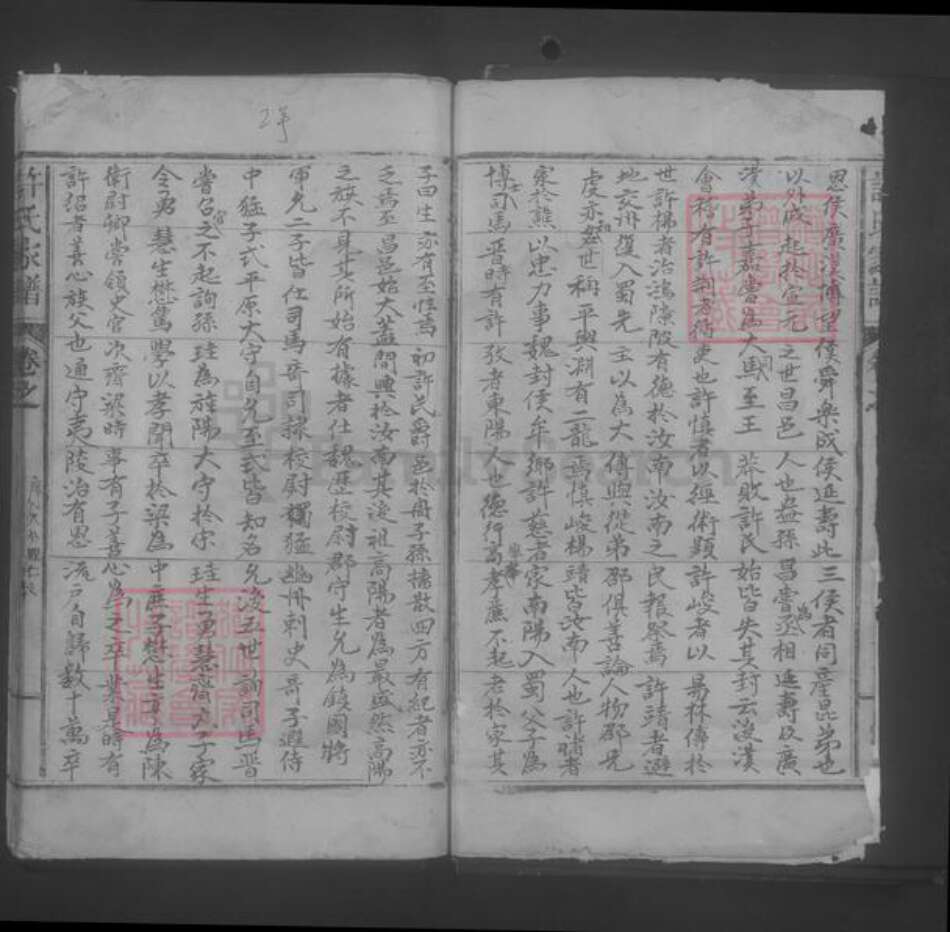 恩侯廣漢傅望侯舜樂成侯延壽此三侯者同產昆弟也
以外戚起於宣元之世昌邑人也無孫昌嘗為丞相延壽及廣
漢弟子嘉嘗為大司馬至王莽敗許氏始皆失其封云後漢
會稽有許荊者循吏也許慎者以經術顯許峻者以易林傳於
世許楊者治鴻隙陂有德於汝南汝南之民報祭焉許靖者避
地交州後入蜀先主以為大傅與從弟邵俱善論人物邵兄
虔亦知名世稱平輿淵有二龍焉慎峻楊靖皆汝南人也許褚者
家於譙以忠力事魏封侯牟鄉許慈者家南陽入蜀父子為
博士司馬晉時有許孜者東陽人也德行高孝廉不起老於家其
子曰生亦有至性焉初許氏爵邑於周子孫播散四方有紀者亦不
乏焉至昌邑始大蓋間興於汝南其後祖高陽者為最盛然高陽
之族不見其所始有據者仕魏歷校尉郡守生允為鎮國將
軍允二子皆仕司馬晉司隸校尉猛幽州刺史奇子遐侍
中猛子式平原大守自允至式皆知名允後五世詢司馬晉
嘗召官之不起詢孫珪為旌陽大守於宋珪生勇慧齊太子家
令勇慧生懋篤學以孝聞卒於梁為中庶子懋生亨為陳
衛尉卿嘗領史官次齊梁時事有子善心為之卒業是時有
許紹者善心族父也通守夷陵治有恩流戶自歸數十萬卒
許氏家譜
卷之一
2耳